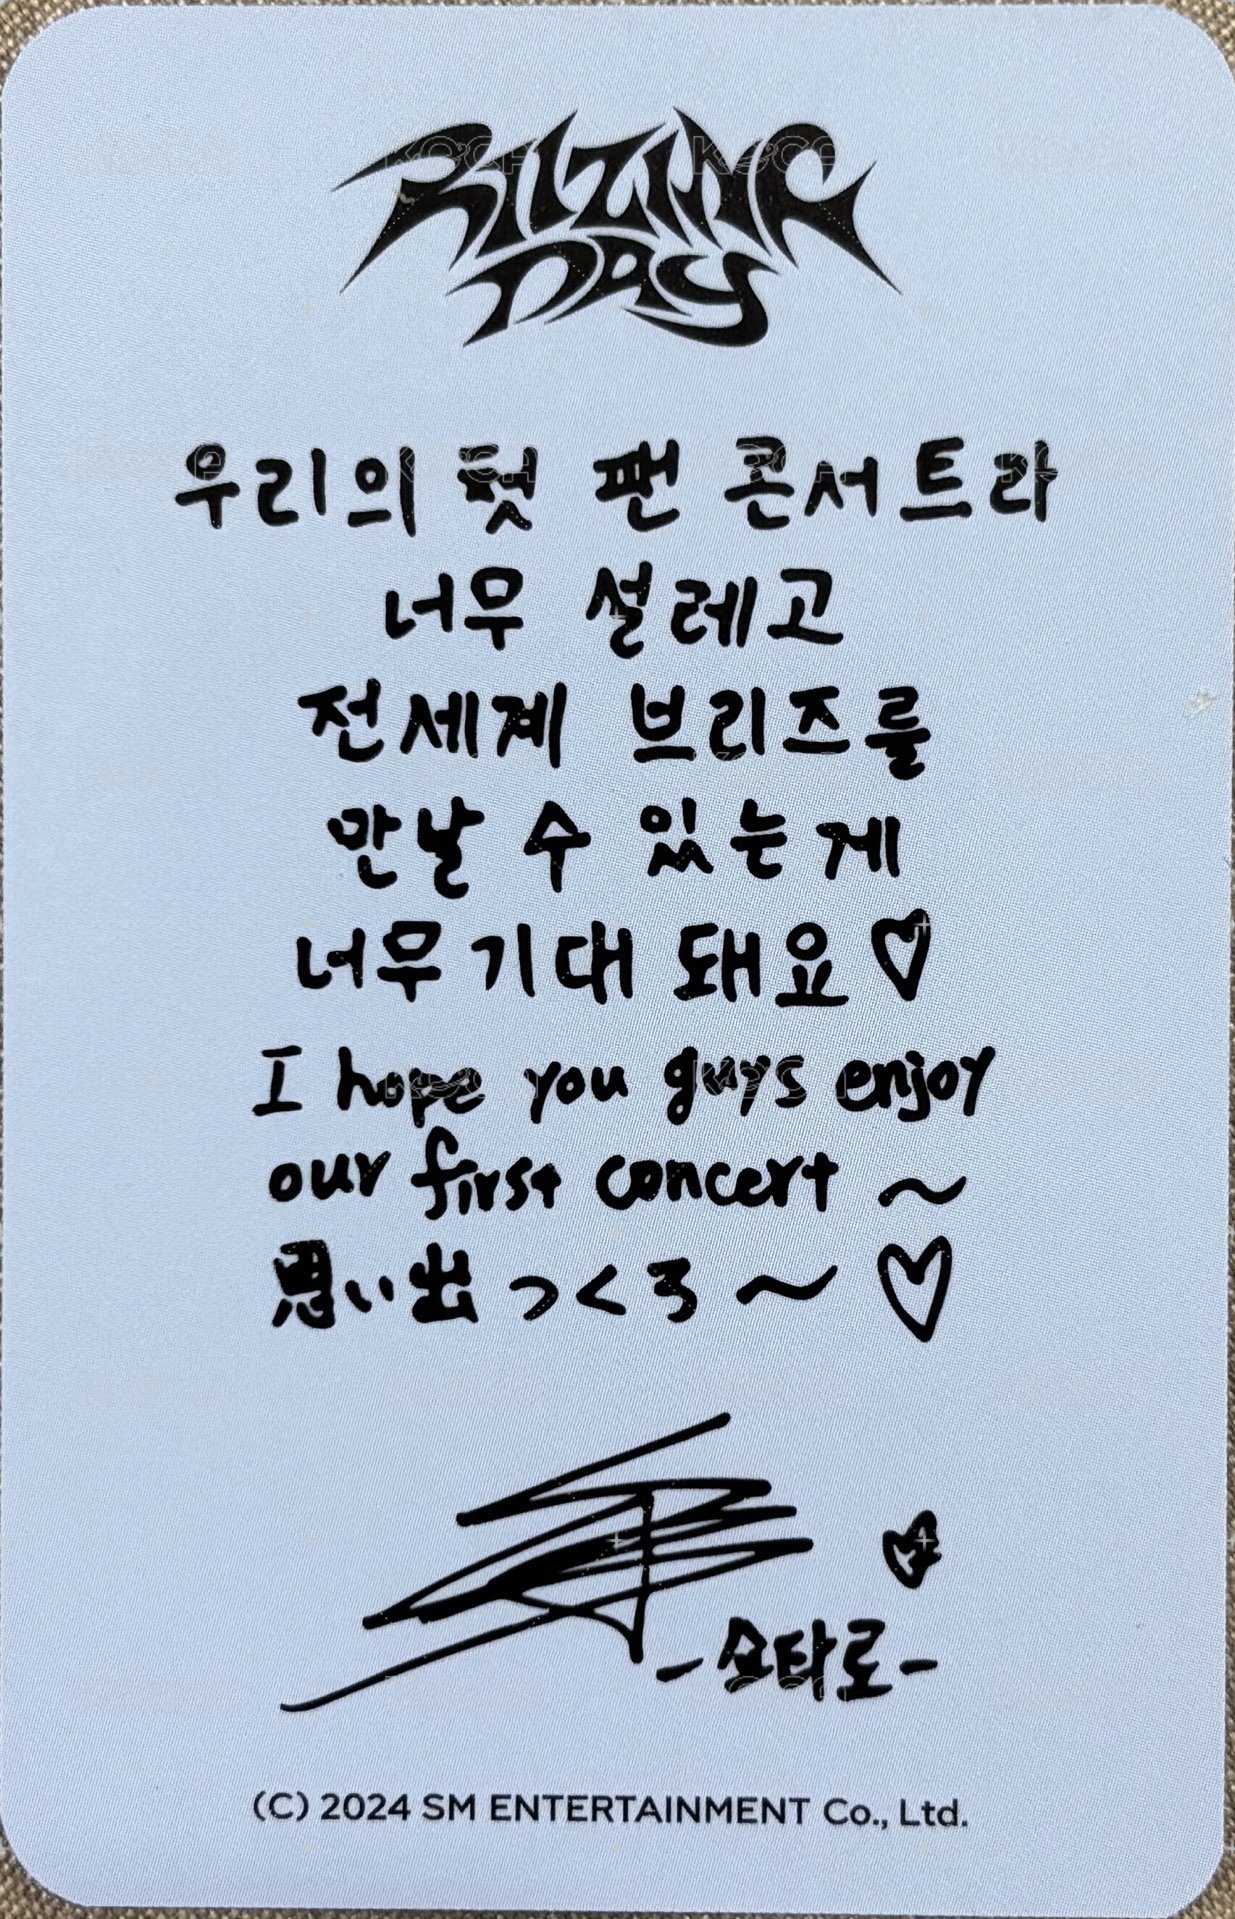 RIIZING
DAY
우리의 첫 팬 콘서트라
너무 설레고
전세계 브리즈를
만날 수 있는게
너무 기대 돼요♡
I hope you guys enjoy
our first concert ~
思い出つくろ~♡
-쇼타로-
(C) 2024 SM ENTERTAINMENT Co., Ltd.